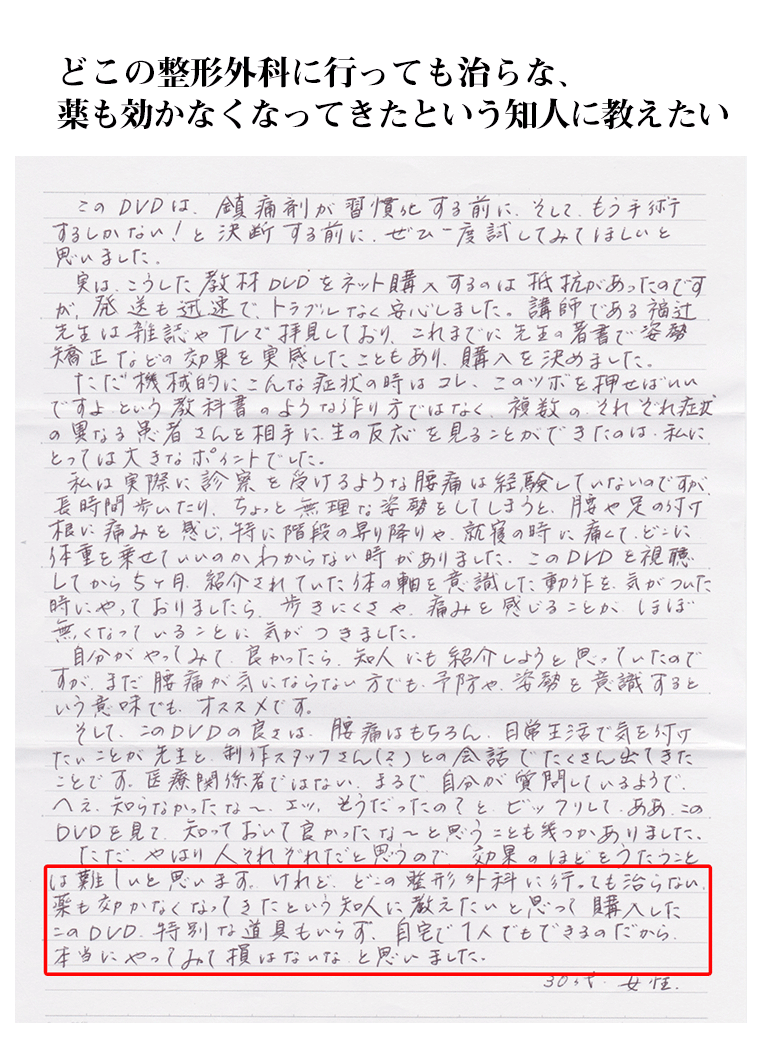 どこの整形外科に行っても治らな、
薬も効かなくなってきたという知人に教えたい
このDVDは、鎮痛剤が習慣化する前に、そして、もう手術
するしかない!と決断する前に、ぜひ一度試してみてほしいと
思いました。
実は、こうした教材DVDをネット購入するのは抵抗があったのです
が、発送も迅速で、トラブルなく安心しました。講師である福辻
先生は雑誌やTVで拝見しており、これまでに先生の著書で姿勢
矯正などの効果を実感したこともあり、購入を決めました。
ただ機械的にこんな症状の時はコレ、このツボを押せばいい
ですよ、という教科書のような作り方ではなく、複数の、それぞれ症状
の異なる患者さんを相手に、生の反応を見ることができたのは、私に
とっては大きなポイントでした。
私は実際に診察を受けるような腰痛は経験していないのですが、
長時間歩いたり、ちょっと無理な姿勢をしてしまうと、腰や足の付け
根に痛みを感じ、特に階段の昇り降りや、就寝の時に痛くて、どこに
体重を乗せていいのかわからない時がありました。このDVDを視聴
してから5ヶ月、紹介されていた体の軸を意識した動作を、気がついた
時にやっておりましたら、歩きにくさや、痛みを感じることが、ほぼ
無くなっていることに気がつきました。
自分がやってみて、良かったら、知人にも紹介しようと思っていたので
すが、まだ腰痛が気にならない方でも、予防や、姿勢を意識すると
いう意味でも、オススメです。
そして、このDVDの良さは、腰痛はもちろん、日常生活で気を付け
たいことが先生と、制作スタッフさん(?)との会話でたくさん出てきた
ことです。医療関係者ではない、まるで、自分が質問しているようで、
へえ、知らなかったな〜、エッ、そうだったの?と、ビックリして、ああ、この
DVDを見て、知っておいて良かったな〜と思うことも幾つかありました、
ただ、やはり人それぞれだと思うので、効果のほどをうたうこと
は難しいと思います。けれど、どこの整形外科に行っても治らない、
薬も効かなくなってきたという知人に教えたいと思って購入した
このDVD、特別な道具もいらず、自宅で1人でもできるのだから、
本当にやってみて損はないな、と思いました。
30代・女性.